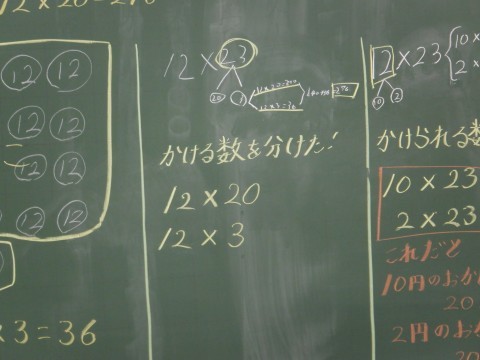 12×20=240
12 12
12 12
12 12
12 12
×3=36
12×23
20 3
12×20=240
12×3=36
276
かける数を分けた!
12×20
12×3
12×23
10×
2×
10 2
かけられる数
10×23
2×23
これだと
10円のおか
20
2円のおか
20